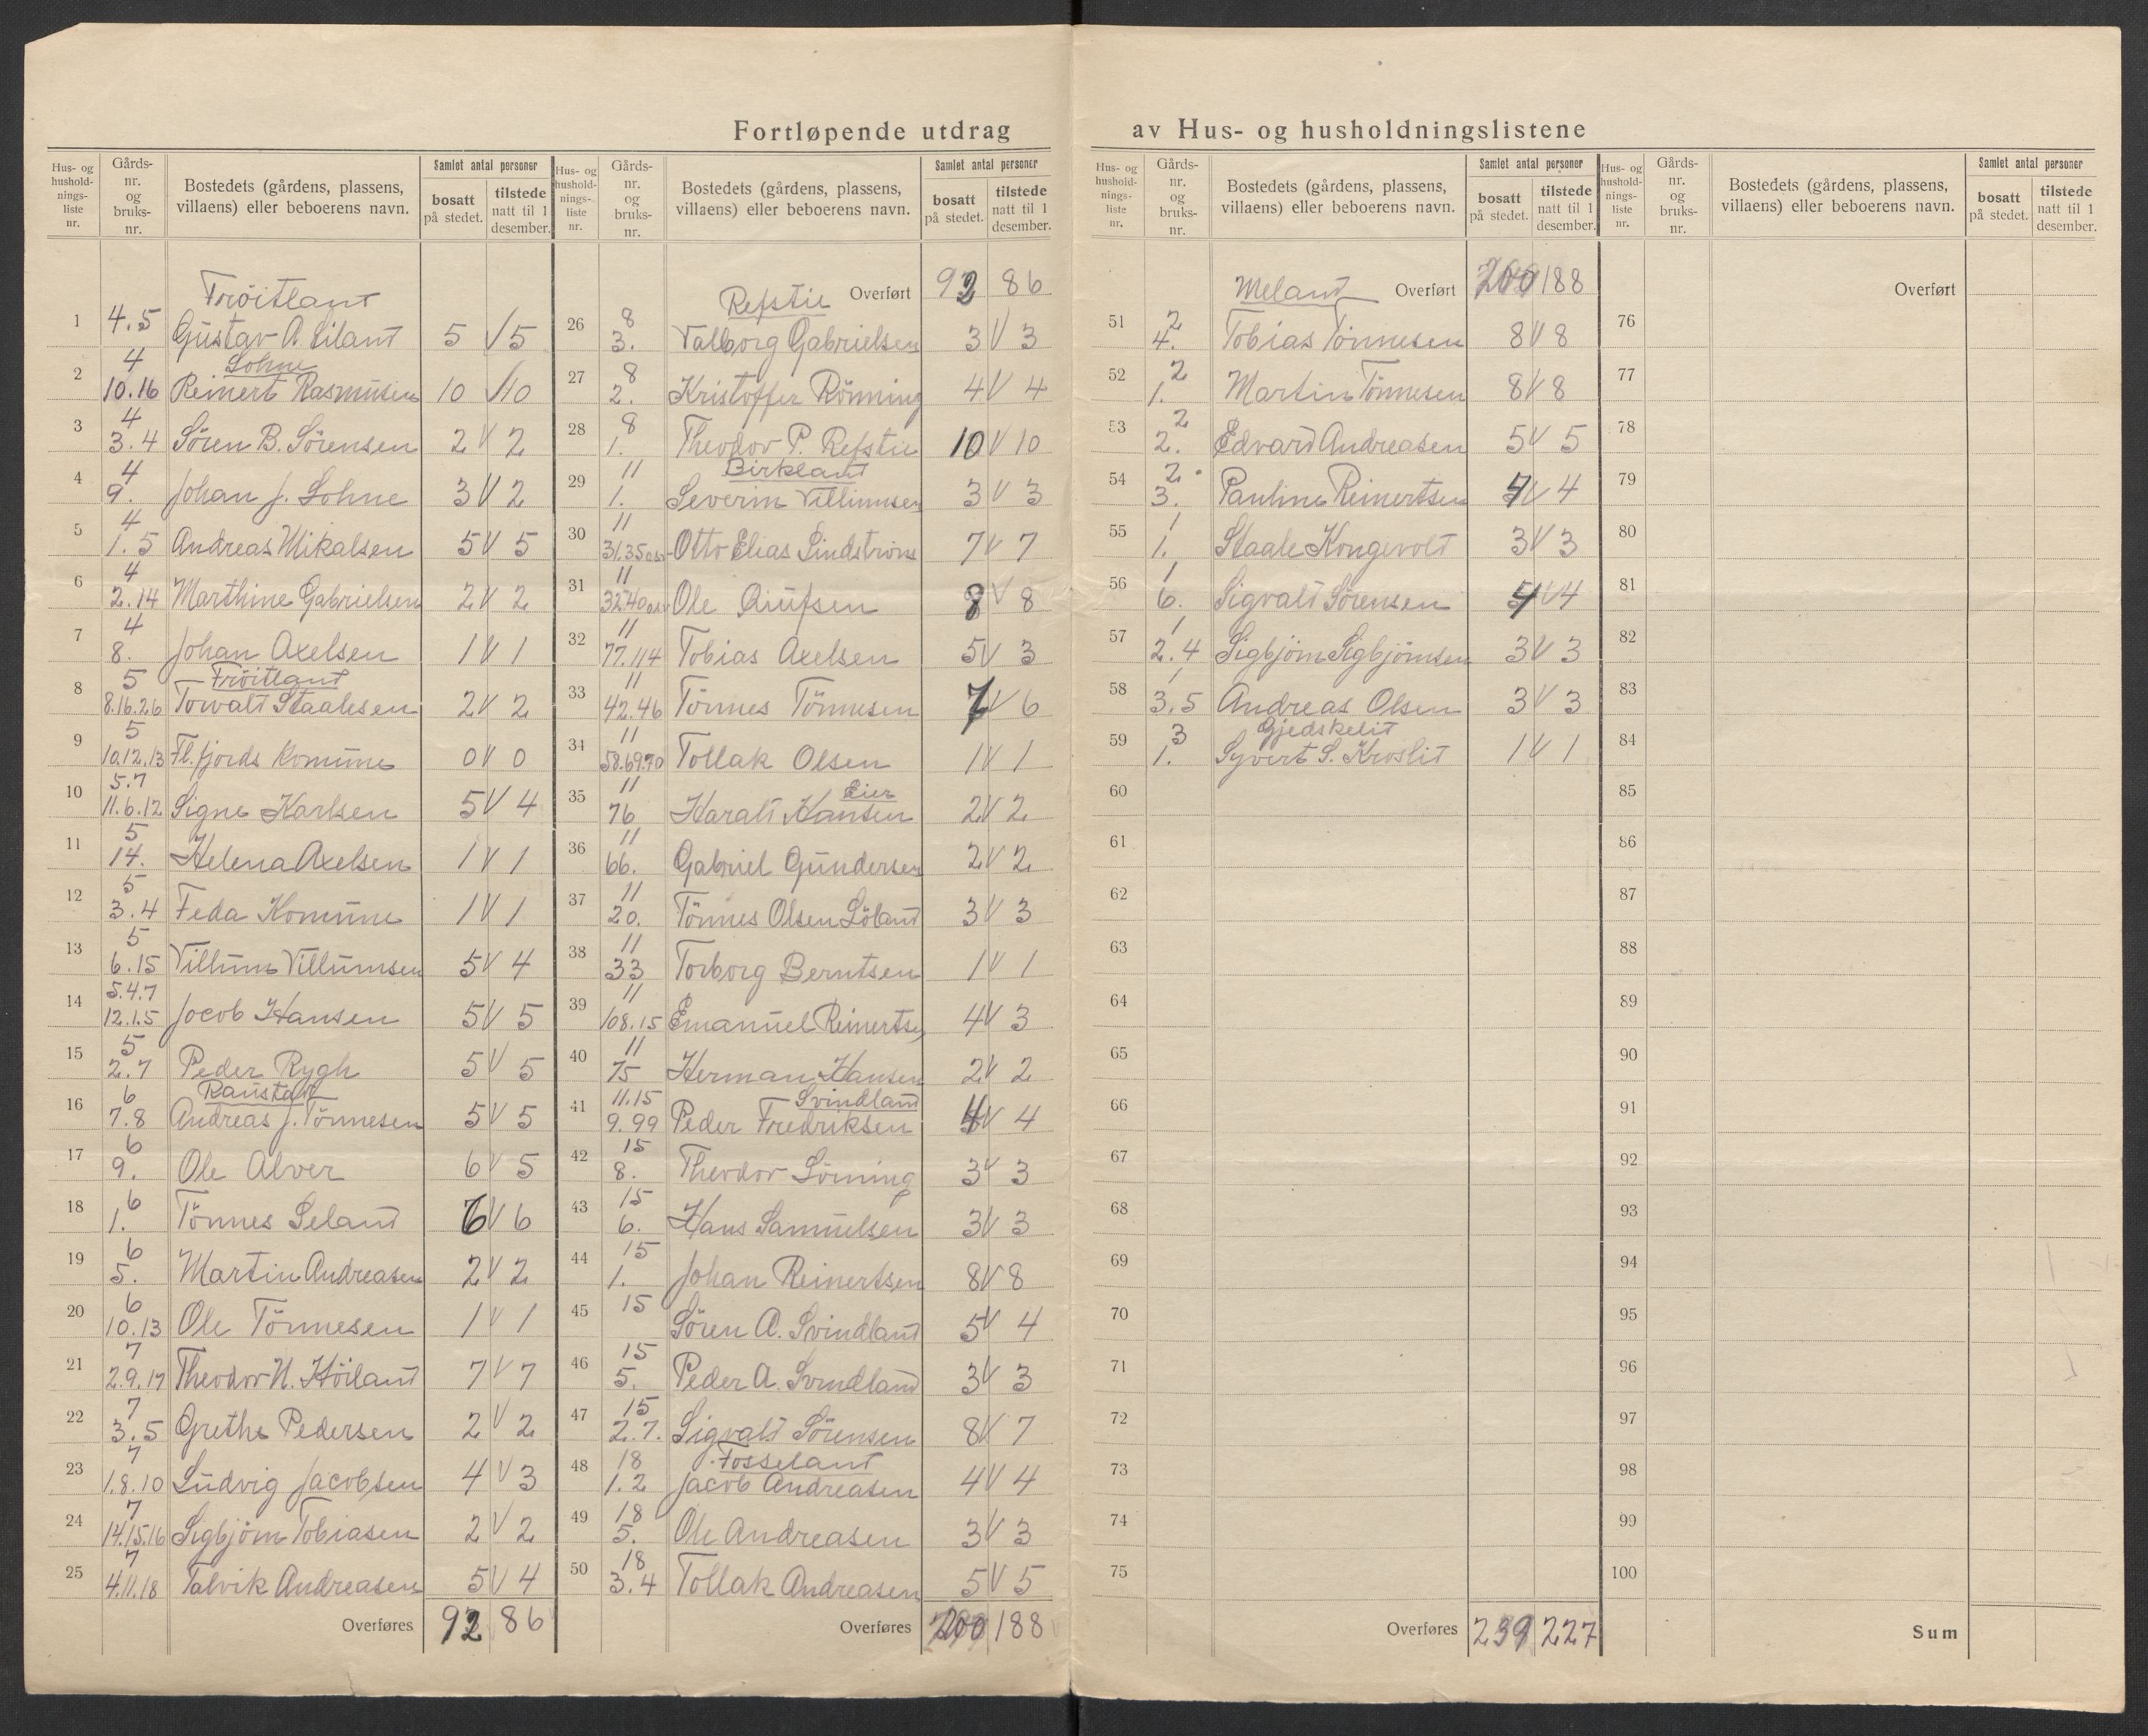 Fortløpende utdrag av Hus- og husholdningslistene
Hus- og hushold-nings-liste nr. Gårds-nr. og bruks-nr. Bostedets (gårdens, plassens, villaens) eller beboerens navn. Samlet antal personer bosatt på stedet. tilstede natt til 1 desember.
Fröitland
1 4.5 Gustav A. Eiland 5 V 5
Lohne
2 4 10.16 Reinert Rasmusen 10 V 10
3 4 3.4 Sören B. Sörensen 2 V 2
4 4 9. Johan J. Lohne 3 V 2
5 4 1.5 Andreas Mikalsen 5 V 5
6 4 2.14 Marthine Gabrielsen 2 V 2
7 4 8. Johan Axelsen 1 V 1
Fröitland
8 5 8.16.26 Torvald Staalesen 2 V 2
9 5 10.12.13 Fl. fjords Komune 0 V 0
10 5.7 11.6.12 Signe Karlsen 5 V 4
11 5 14. Helena Axelsen 1 V 1
12 5 3.4 Feda Komune 1 V 1
13 5 6.15 Villum Villumsen 5 V 4
14 5.4.7 12.1.5 Jocob Hansen 5 V 5
15 5 2.7 Peder Rygh 5 V 5
Raustad
16 6 7.8 Andreas J. Tönnesen 5 V 5
17 6 9. Ole Alver 6 V 5
18 6 1. Tönnes Seland 6 V 6
19 6 5. Martin Andreasen 2 V 2
20 6 10.13 Ole Tönnesen 1 V 1
21 7 2.9.17 Theodor N. Höiland 7 V 7
22 7 3.5 Grethe Pedersen 2 V 2
23 7 1.8.10 Ludvig Jacobsen 4 V 3
24 7 14.15.16 Sigbjörn Tobiasen 2 V 2
25 7 4.11.18 Talvik Andreasen 5 V 4
Overføres 92 86
Hus- og hushold-nings-liste nr. Gårds-nr. og bruks-nr. Bostedets (gårdens, plassens, villaens) eller beboerens navn. Samlet antal personer bosatt på stedet. tilstede natt til 1 desember.
Refstie Overført 92 86
26 8 3. Valborg Gabrielsen 3 V 3
27 8 2. Kristoffer Rönning 4 V 4
28 8 1. Theodor P. Refstie 10 V 10
Birkland
29 11 1. Severin Villumsen 3 V 3
30 11 31.35 Otto Elias Lindström 7 V 7
31 11 32.40 Ole 8 V 8
32 11 77.114 Tobias Axelsen 5 V 3
33 11 42.46 Tönnes Tönnesen 7 V 6
34 11 58.69.70 Tollak Olsen 1 V 1
Eier
35 11 76 Harald Hansen 2 V 2
36 11 66. Gabriel Gundersen 2 V 2
37 11 20. Tönnes Olsen Löland 3 V 3
38 11 33 Torborg Berntsen 1 V 1
39 11 108.15 Emanuel Reinertsen 4 V 3
40 11 75 Herman Hansen 2 V 2
Svindland
41 11.15 9.99 Peder Fredriksen 4 V 4
42 15 8. Theodor Löining 3 V 3
43 15 6. Hans Samuelsen 3 V 3
44 15 1. Johan Reinertsen 8 V 8
45 15 Sören A. Svindland 5 V 4
46 15 5. Peder A. Svindland 3 V 3
47 15 2.7. Sigvald Sörensen 8 V 7
Fosseland
48 18 1.2 Jacob Andreasen 4 V 4
49 18 5. Ole Andreasen 3 V 3
50 18 3.4 Tollak Andreasen 5 V 5
Overføres 200 188
Hus- og hushold-nings-liste nr. Gårds-nr. og bruks-nr. Bostedets (gårdens, plassens, villaens) eller beboerens navn. Samlet antal personer bosatt på stedet. tilstede natt til 1 desember.
Meland Overført 200 188
51 2 4. Tobias Tönnesen 8 V 8
52 2 1. Martin Tönnesen 8 V 8
53 2 2. Edvard Andreasen 5 V 5
54 2 3. Pauline Reinertsen 4 V 4
55 1 1. Staale Kongevold 3 V 3
56 1 6. Sigvald Sörensen 4 V 4
57 1 2.4 Sigbjörn Sigbjörnsen 3 V 3
58 1 3.5 Andreas Olsen 3 V 3
Gjedskelid
59 3 1. Syvert S. Kroslid 1 V 1
60
61
62
63
64
65
66
67
68
69
70
71
72
73
74
75
Overføres 239 227
Hus- og hushold-nings-liste nr. Gårds-nr. og bruks-nr. Bostedets (gårdens, plassens, villaens) eller beboerens navn. Samlet antal personer bosatt på stedet. tilstede natt til 1 desember.
Overført
76
77
78
79
80
81
82
83
84
85
86
87
88
89
90
91
92
93
94
95
96
97
98
99
100
Sum